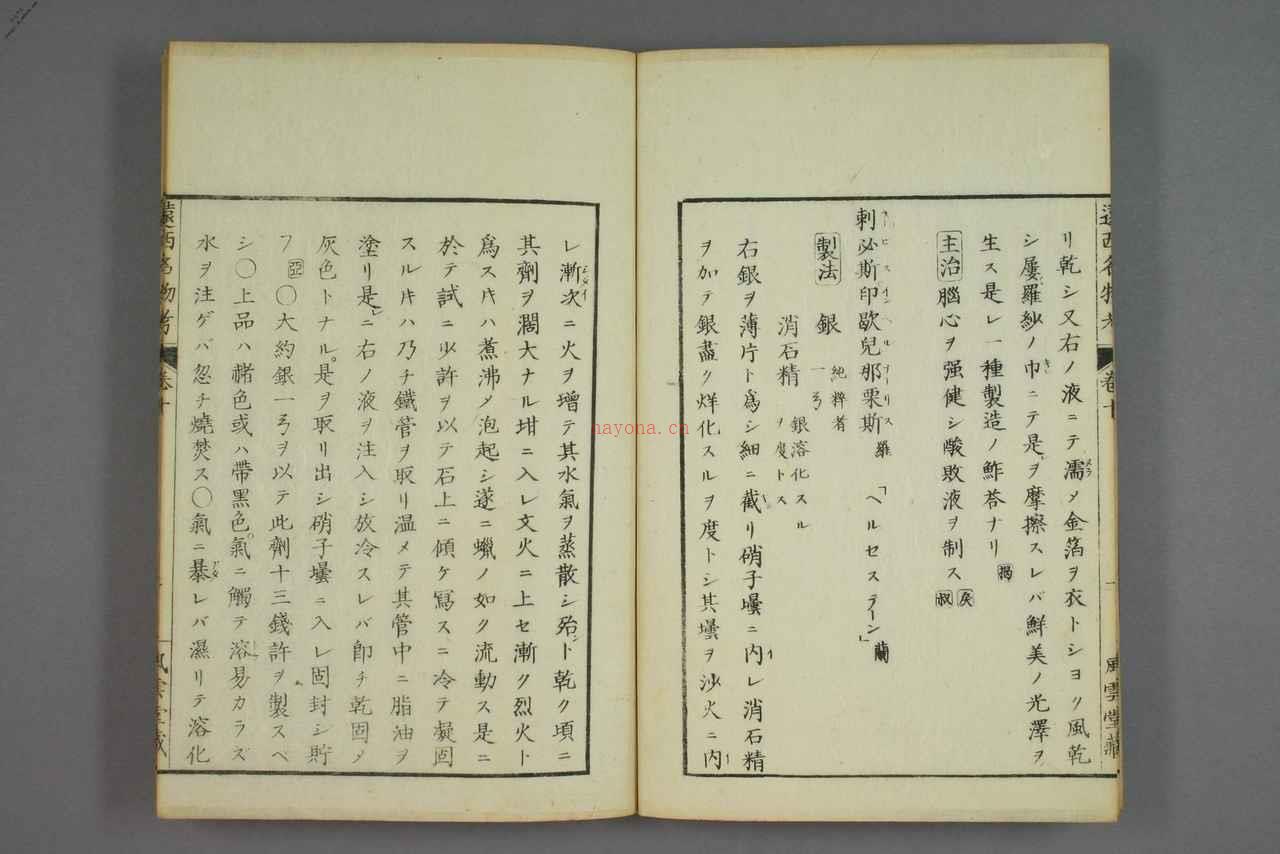 リ乾シ又右ノ液ニテ濡メ金箔ヲ衣トシヨク風乾
シ屡羅紗ノ巾ニテ是ヲ摩擦スレバ鮮美ノ光澤ヲ
生ス是レ一種製造ノ鮓荅ナリ
主治 腦心ヲ强健シ酸敗液ヲ制ス
刺必斯印歇兒那栗斯 羅 「ヘルセステーン」蘭
製法 銀 純粹者 一弓
消石精 銀溶化スルヲ度トス
右銀ヲ薄片ト爲シ細ニ截リ硝子壜ニ内レ消石精
ヲ加テ銀盡ク烊化スルヲ度トシ其壜ヲ沙火ニ内
卷十
風雲堂藏
レ漸次ニ火ヲ增テ其水氣ヲ蒸散シ殆ト乾ク頃ニ
其劑ヲ濶大ナル坩ニ入レ文火ニ上セ漸ク烈火ト
爲スﾄｷハ煮沸メ泡起シ遂ニ蠟ノ如ク流動ス是ニ
於テ試ニ少許ヲ以テ石上ニ傾ケ寫スニ冷テ凝固
スルﾄｷハ乃チ鐵管ヲ取リ温メテ其管中ニ脂油ヲ
塗リ是ニ右ノ液ヲ注入シ放冷スレバ卽チ乾固メ
灰色トナル是ヲ取リ出シ硝子壜ニ入レ固封シ貯
フ 亞 〇大約銀一弓ヲ以テ此劑十三錢許ヲ製スベ
シ〇上品ハ赭色或ハ帶黑色氣ニ觸テ溶易カラズ
水ヲ注ゲバ忽チ燒焚ス〇氣ニ暴レバ濕リテ溶化
遠西名物考
卷十
風雲堂藏
nayona.cn